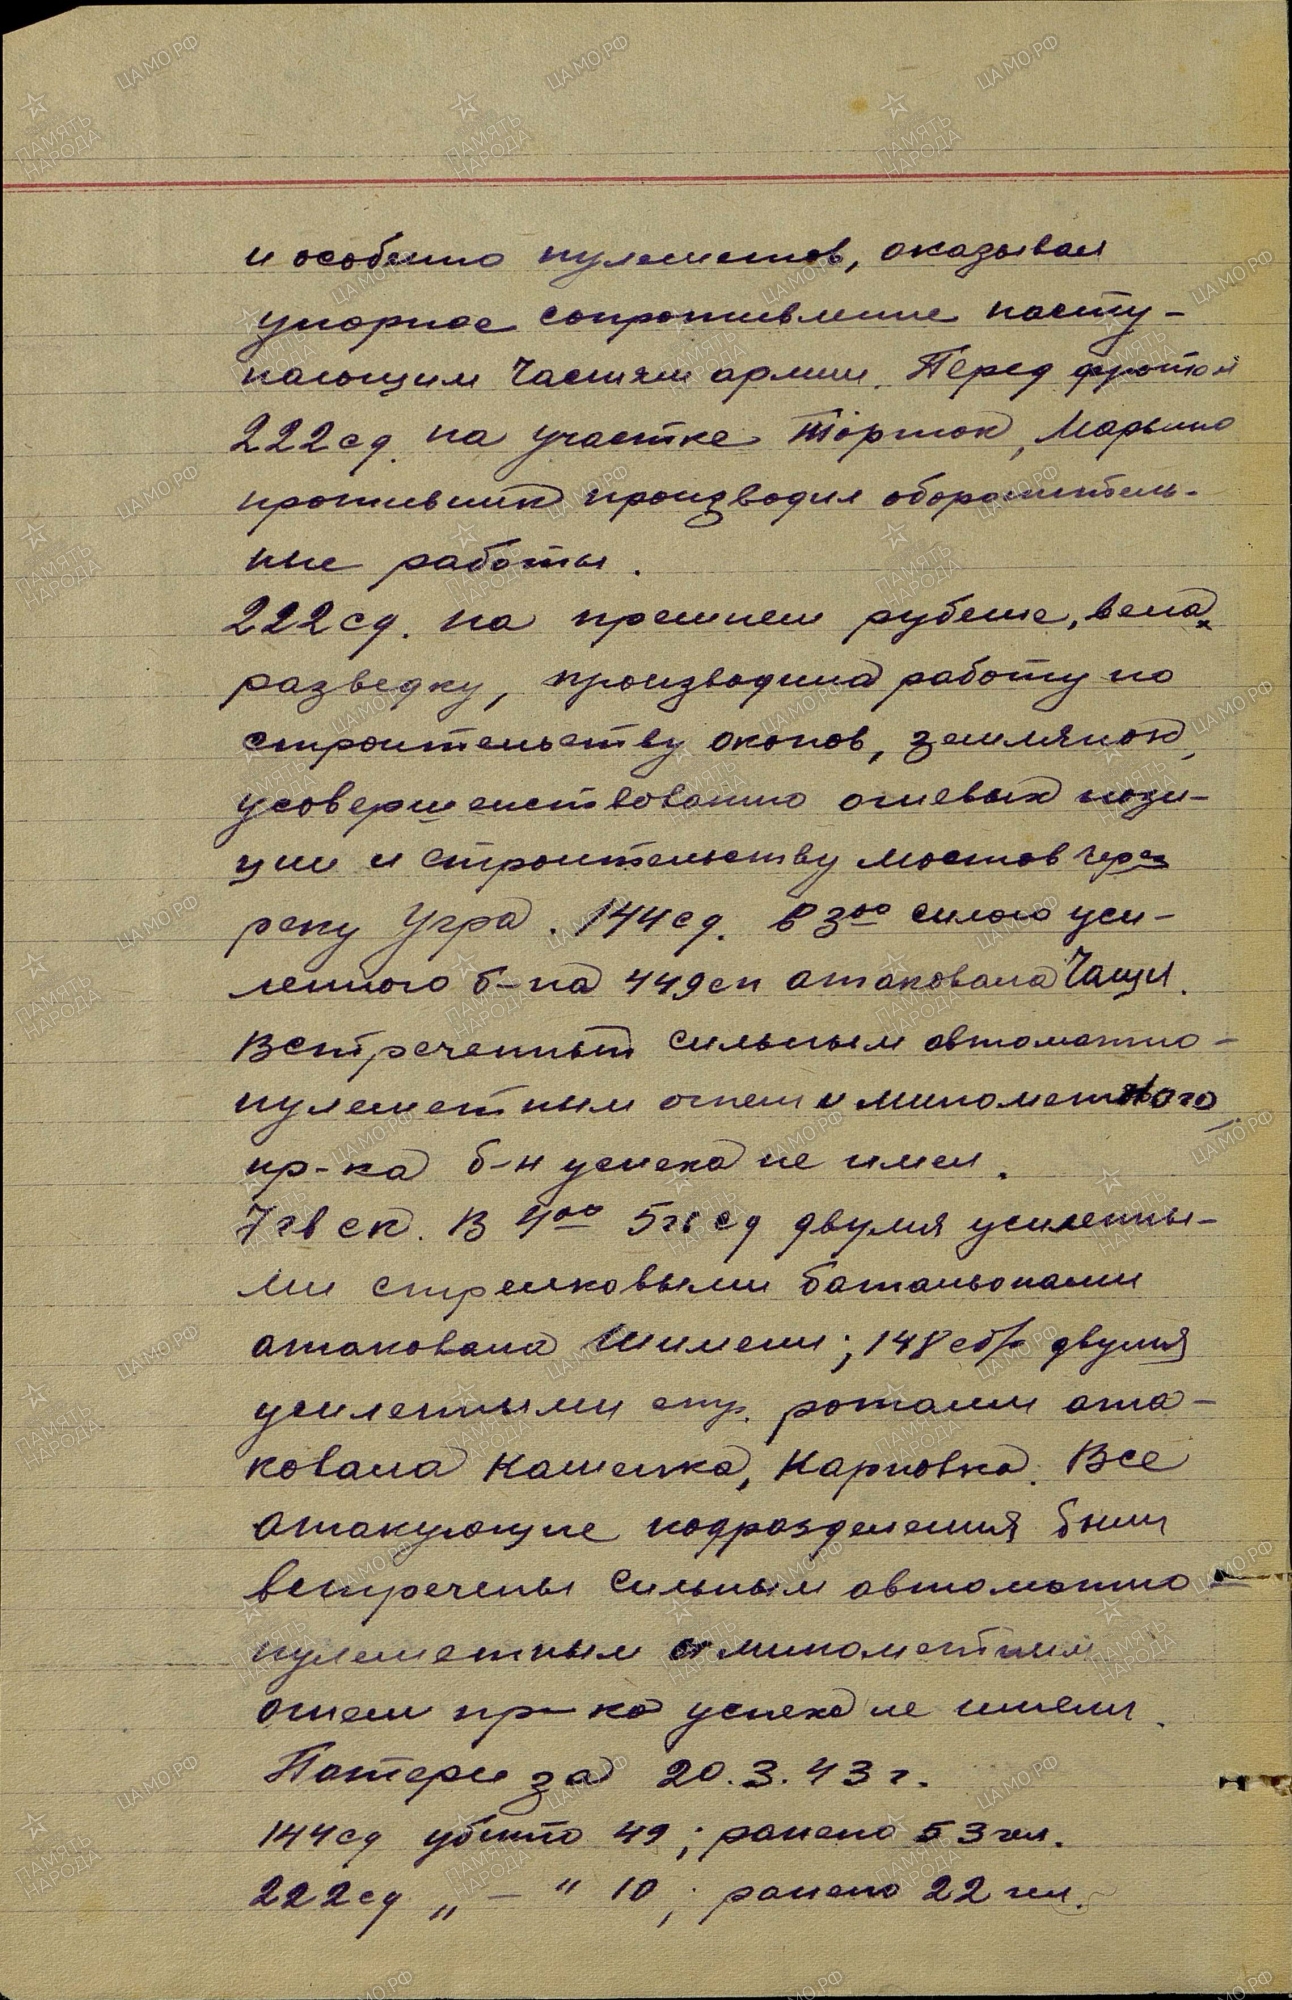 и особенно пулеметов, оказывал
упорное сопротивление насту-
пающим частям армии. Перед фронтом
222сд. на участке Торток, Марьино
противник производил оборонитель-
ные работы.
222сд. на прежнем рубеже, вела
разведку, производила работу по
строительству окопов, землянок,
усовершенствованию огневых пози-
ций и строительству мостов через
реку Угра. 144сд. в 3⁰⁰ силою уси-
ленного б-на 449сп атаковала Чащи.
Встреченный сильным автоматно-
пулеметным огнем и минометного
пр-ка б-н успеха не имел.
7гв ск. В 4⁰⁰ 5гв сд двумя усиленны-
ми стрелковыми батальонами
атаковала Шимени; 148сбр двумя
усиленными стр. ротами ата-
ковала Кашелка, Карповка. Все
атакующие подразделения были
встречены сильным автоматно-
пулеметным и минометным
огнем пр-ка успеха не имели.
Потери за 20.3.43г.
144сд убито 49; ранено 53 чел.
222сд „ — " 10; ранено 22 чел.